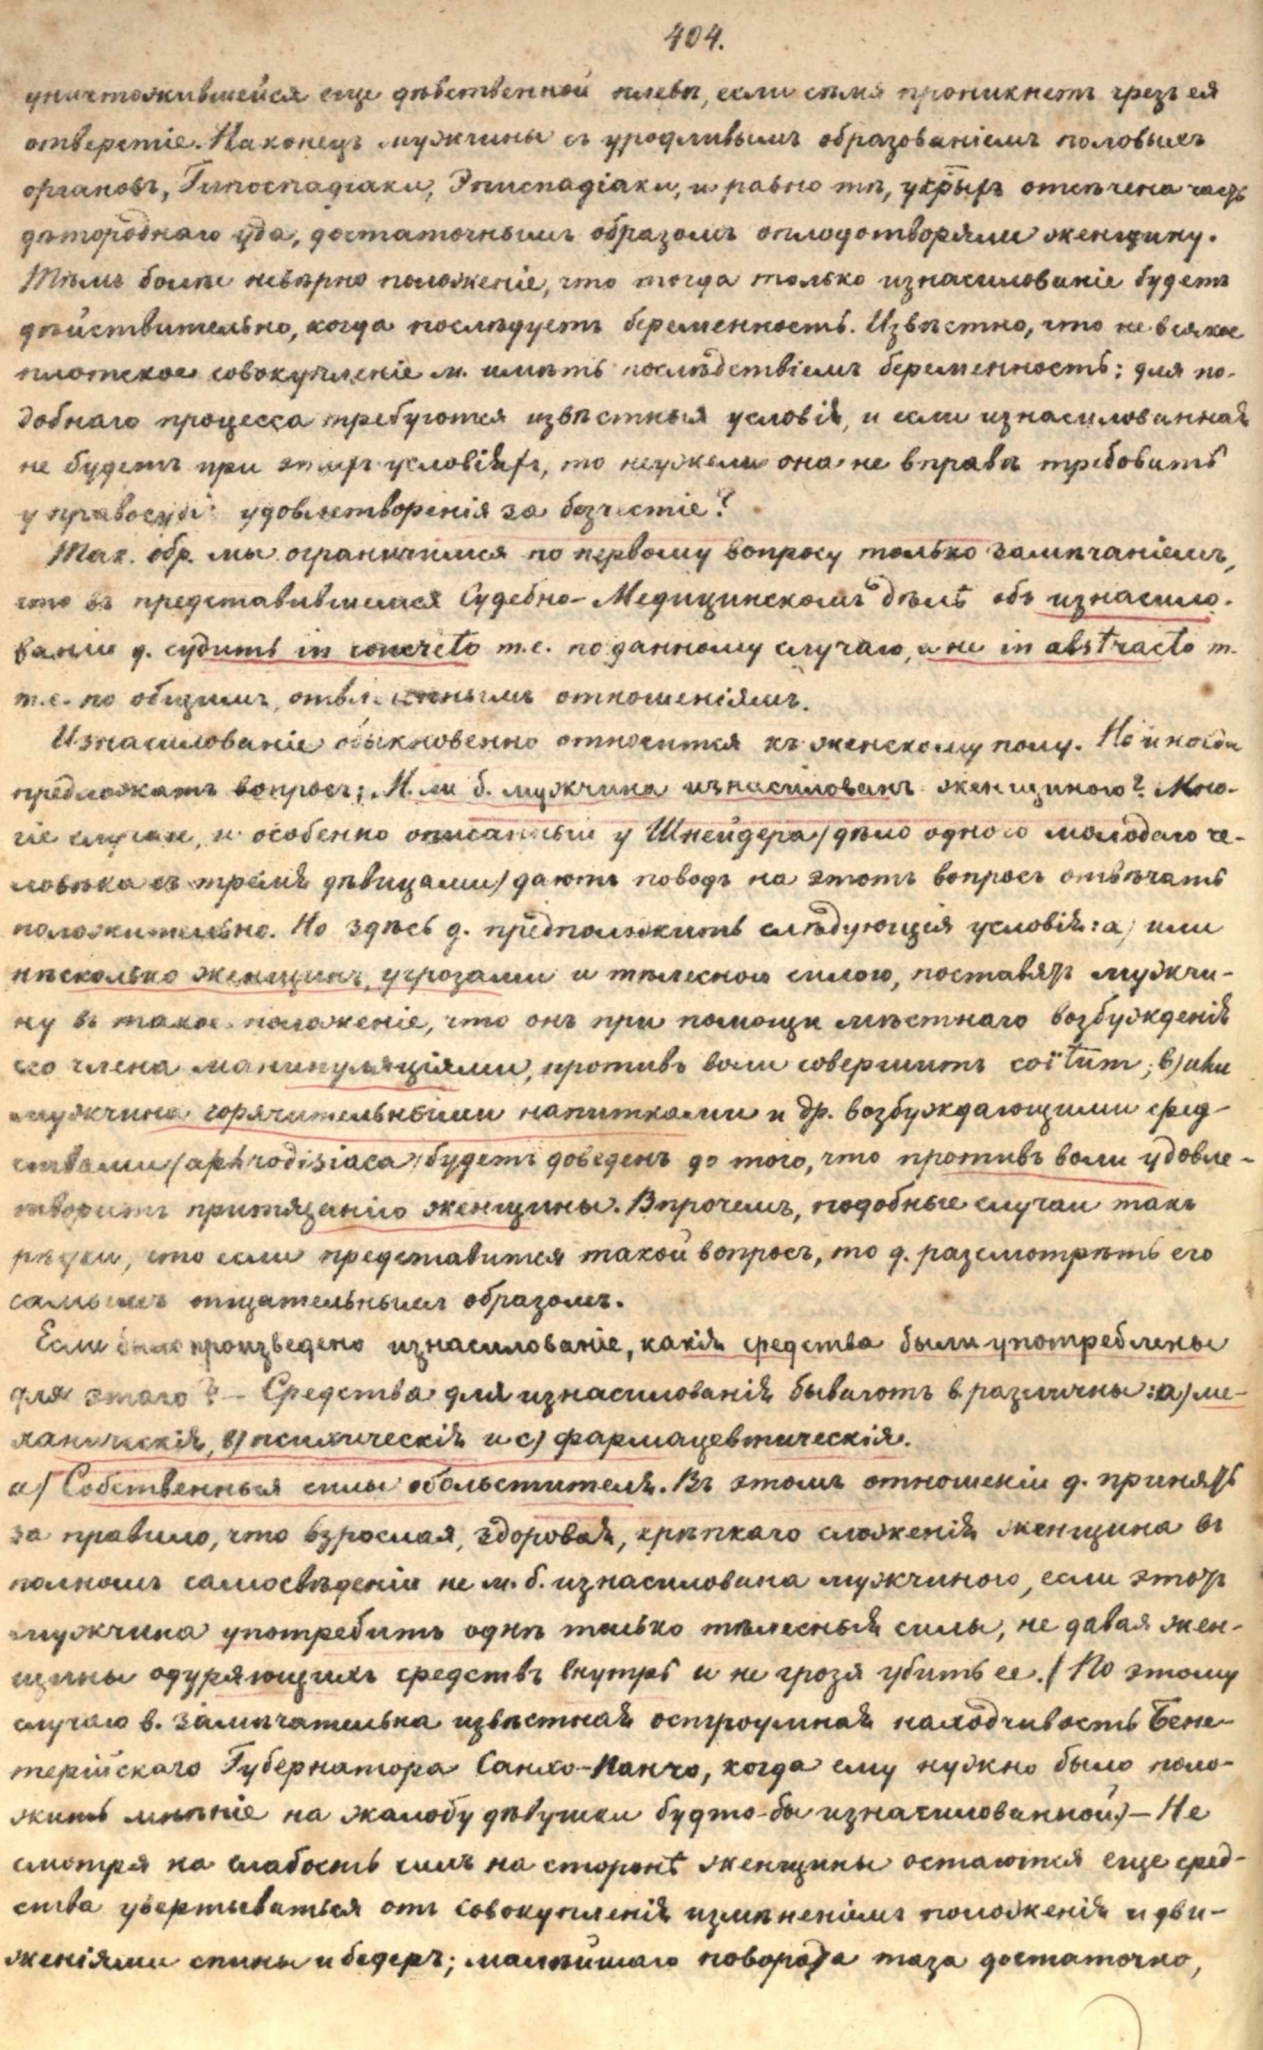 404.
уничтожившейся еще дѣвственной плевѣ, если сѣмя проникнетъ чрезъ ея
отверстіе. Наконецъ мужчины съ уродливымъ образованіемъ половыхъ
органовъ, Гипоспадіаки, Эписпадіаки, и равно тѣ, у кᲂторыхъ отсѣчена часть
дѣтороднаго уда, достаточнымъ образомъ оплодотворяли женщину.
Тѣмъ болѣе невѣрно положеніе, что тогда только изнасилованіе будетъ
дѣйствительно, когда послѣдуетъ беременность. Извѣстно, что не всякое
плотское совокупленіе м. имѣть послѣдствіемъ беременность; для по-
добнаго процесса требуются извѣстныя условія, и если изнасилованная
не будетъ при этихъ условіяхъ, то неужели она не вправѣ требовать
у правосудія удовлетворенія за безчестіе?
Так. обр. мы ограничимся по первому вопросу только замѣчаніемъ,
что въ представившемся Судебно-Медицинскомъ дѣлѣ объ изнасило-
ваніи д. судить in concreto т.е. по данному случаю, а не in abstracto т.
т.е. по общимъ, отвлеченнымъ отношеніямъ.
Изнасилованіе обыкновенно относится къ женскому полу. Но иногда
предложатъ вопросъ: М. ли б. мужчина изнасилованъ женщиною? Мно-
гіе случаи, и особенно описанный у Шнейдера (дѣло одного молодаго че-
ловѣка съ тремя дѣвицами) даютъ поводъ на этотъ вопросъ отвѣчать
положительно. Но здѣсь д. предположить слѣдующія условія: a) или
нѣсколько женщинъ, угрозами и тѣлесною силою, поставятъ мужчи-
ну въ такое положеніе, что онъ при помощи мѣстнаго возбужденія
его члена манипуляціями, противъ воли совершитъ coïtum; b) или
мужчина горячительными напитками и др. возбуждающими сред-
ствами (aphrodisiaca) будетъ доведенъ до того, что противъ воли удовле-
творитъ притязанію женщины. Впрочемъ, подобные случаи такъ
рѣдки, что если представится такой вопросъ, то д. разсмотрѣть его
самымъ тщательнымъ образомъ.
Если было произведено изнасилованіе, какія средства были употреблены
для этаго? – Средства для изнасилованія бываютъ в. различны: a) ме-
ханическія, b) психическія и c) фармацевтическія.
a) Собственныя силы обольстителя. Въ этомъ отношеніи д. принять
за правило, что взрослая, здоровая, крѣпкаго сложенія женщина въ
полномъ самосвѣденіи не м. б. изнасилована мужчиною, если этотъ
мужчина употребитъ однѣ только тѣлесныя силы, не давая жен-
щины одуряющихъ средствъ внутрь и не грозя убить ее. (По этому
случаю в. замѣчательна извѣстная остроумная находчивость Бене-
терійскаго Губернатора Санхо-Панчо, когда ему нужно было поло-
жить мнѣніе на жалобу дѣвушки будто-бы изнасилованной) – Не
смотря на слабость силъ на сторонѣ женщины остаются еще сред-
ства увертываться отъ совокупленія измѣненіемъ положенія и дви-
женіями спины и бедеръ; малѣйшаго поворота таза достаточно,